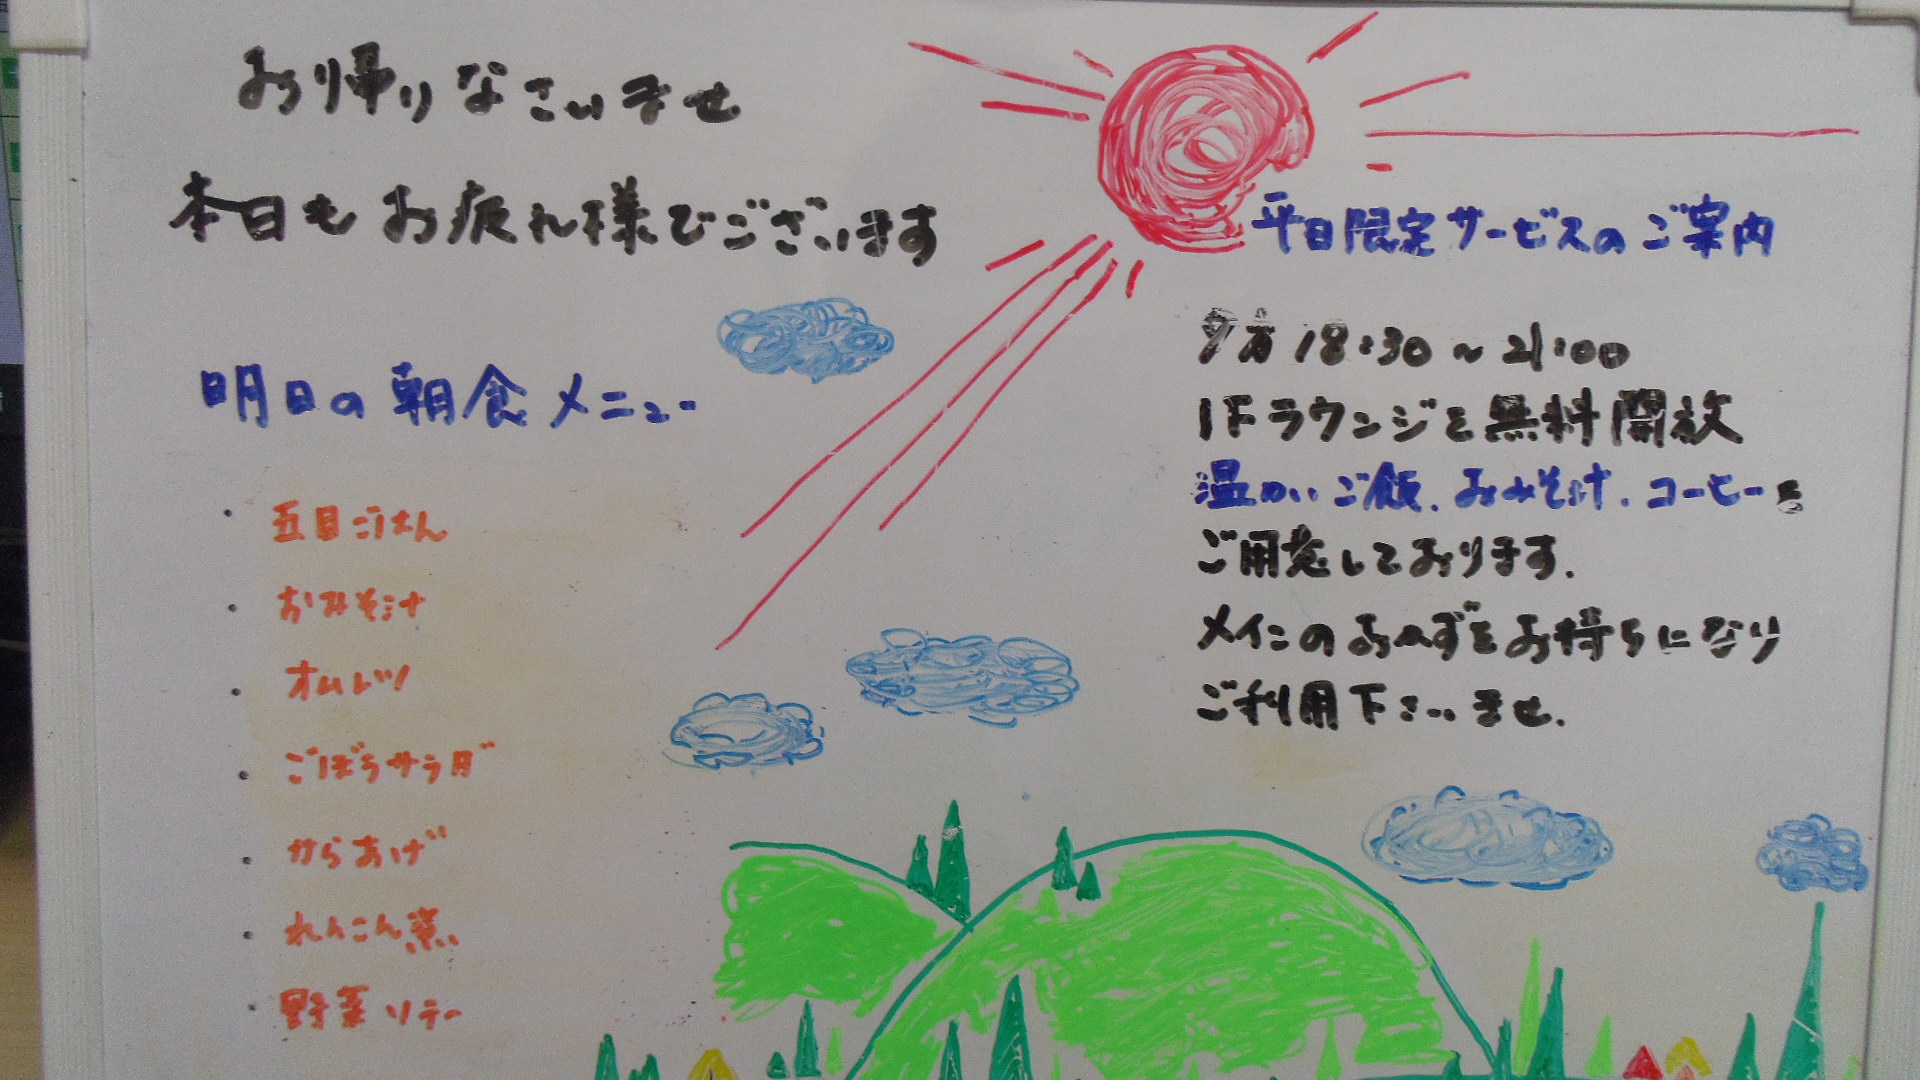 お帰りなさいませ
本日もお疲れ様でございます
明日の朝食メニュー
・五目ごはん
・おみそ汁
・オムレツ
・ごぼうサラダ
・からあげ
・れんこん煮
・野菜ソテー
平日限定サービスのご案内
夕方 18:30～21:00
1Fラウンジを無料開放
温かいご飯、おみそ汁、コーヒーを
ご用意しております。
メインのおかずをお持ちになり
ご利用下さいませ。